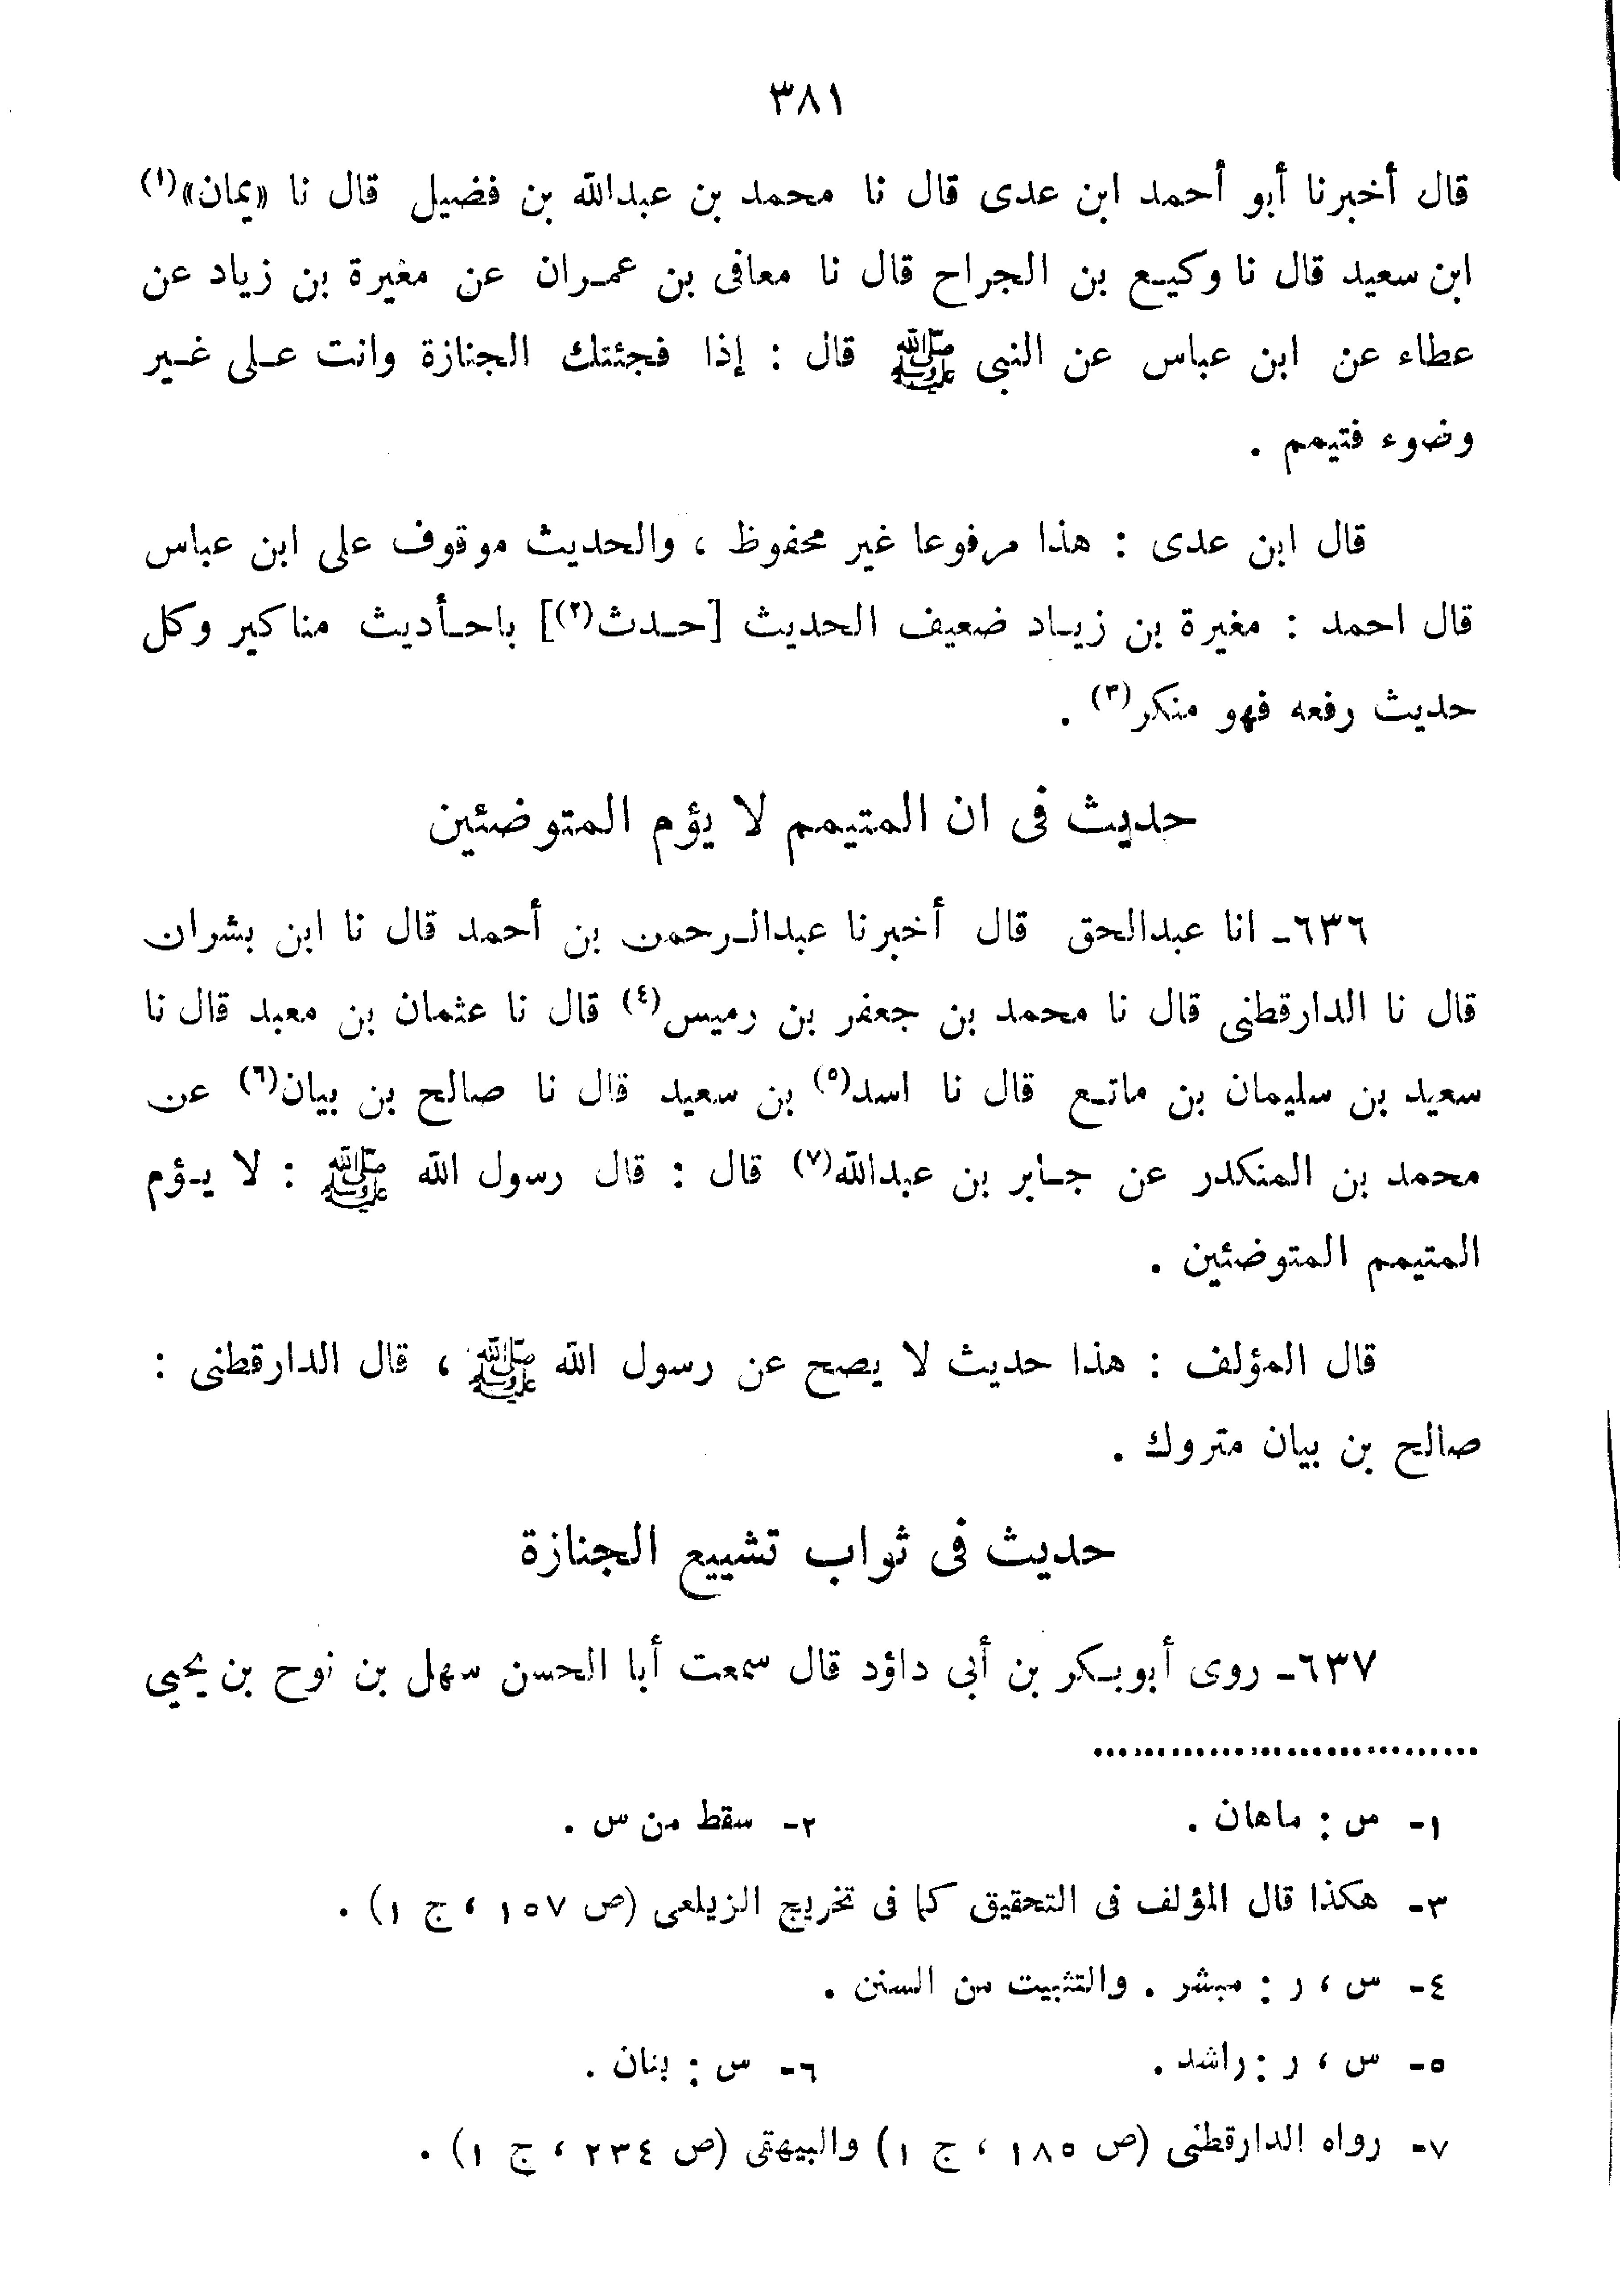 ٣٨١
قال أخبرنا أبو أحمد ابن عدى قال نا محمد بن عبدالله بن فضيل قال نا «يمان»(١)
ابن سعيد قال نا وكيع بن الجراح قال نا معافى بن عمران عن مغيرة بن زياد عن
عطاء عن ابن عباس عن النبى ﷺ قال : إذا فجئتك الجنازة وانت على غير
وضوء فتيمم .
قال ابن عدى : هذا مرفوعا غير محفوظ ، والحديث موقوف على ابن عباس
قال احمد : مغيرة بن زياد ضعيف الحديث [حدث(٢)] باحأديث مناكير وكل
حديث رفعه فهو منكر(٣) .
حديث فى ان المتيمم لا يؤم المتوضئين
٦٣٦- انا عبدالحق قال أخبرنا عبدالرحمن بن أحمد قال نا ابن بشران
قال نا الدارقطنى قال نا محمد بن جعفر بن رميس(٤) قال نا عثمان بن معبد قال نا
سعيد بن سليمان بن ماتع قال نا اسد(٥) بن سعيد قال نا صالح بن بيان(٦) عن
محمد بن المنكدر عن جابر بن عبدالله(٧) قال : قال رسول الله ﷺ : لا يؤم
المتيمم المتوضئين .
قال المؤلف : هذا حديث لا يصح عن رسول الله ﷺ ، قال الدارقطنى :
صالح بن بيان متروك .
حديث فى ثواب تشييع الجنازة
٦٣٧- روى أبوبكر بن أبى داؤد قال سمعت أبا الحسن سهل بن نوح بن يحيى
..............................
١- س : ماهان . ٢- سقط من س .
٣- هكذا قال المؤلف فى التحقيق كما فى تخريج الزيلعى (ص ١٥٧ ، ج ١) .
٤- س ، ر : مبشر . والتثبيت من السنن .
٥- س ، ر : راشد . ٦- س : بنان .
٧- رواه الدارقطنى (ص ١٨٥ ، ج ١) والبيهقى (ص ٢٣٤ ، ج ١) .